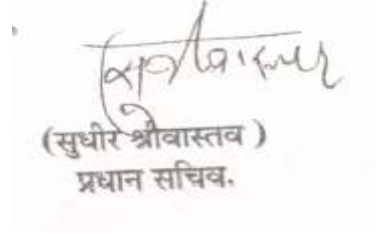 (सुधीर श्रीवास्तव )
प्रधान सचिव.